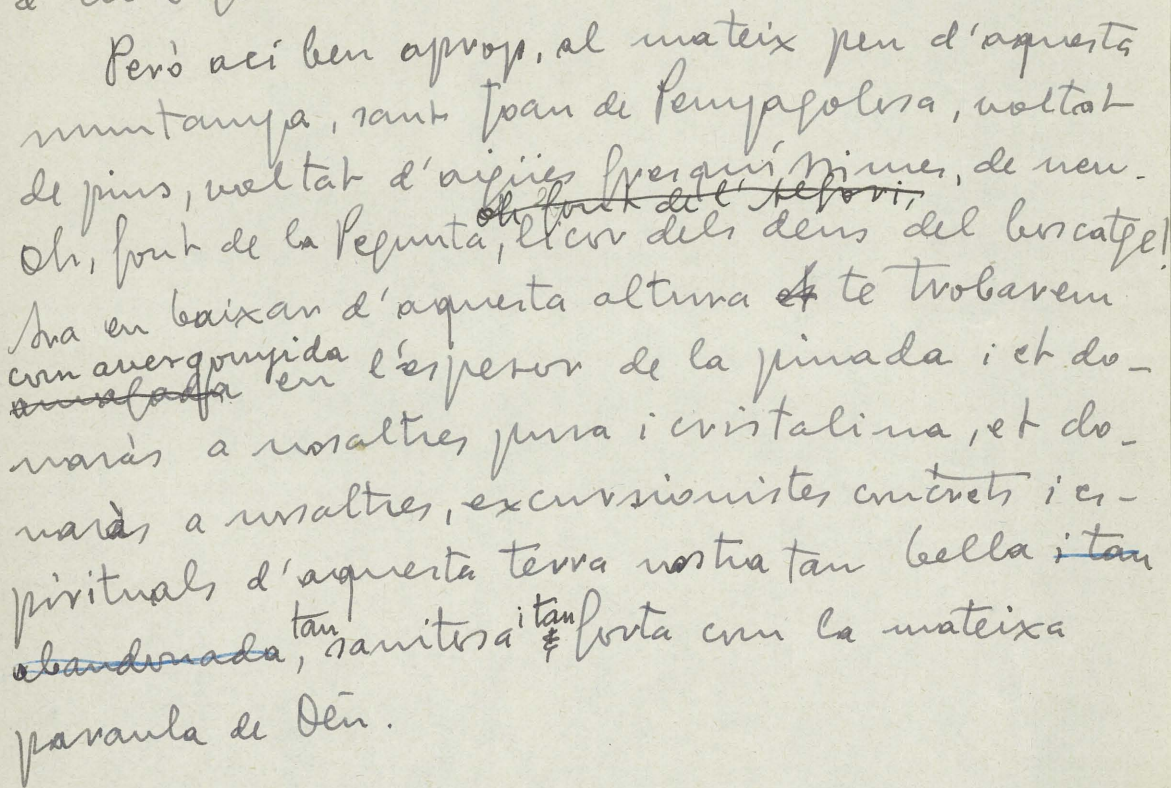 Però ací ben aprop, al mateix peu d'aquesta
muntanya, sant Joan de Penyagolosa, voltat
de pins, voltat d'aigües fresquíssimes, de neu.
oh font de l'
Oh, font de la Pegunta, licor dels deus del boscatge!
Ara en baixar d'aquesta altura te trobarem
com avergonyida
en l'espesor de la pinada i et do-
naràs a nosaltres pura i cristalina, et do-
naràs a nosaltres, excursionistes concrets i es-
pirituals d'aquesta terra nostra tan bella i tan
abandonada, tan sanitosa i tan forta com la mateixa
paraula de Déu.